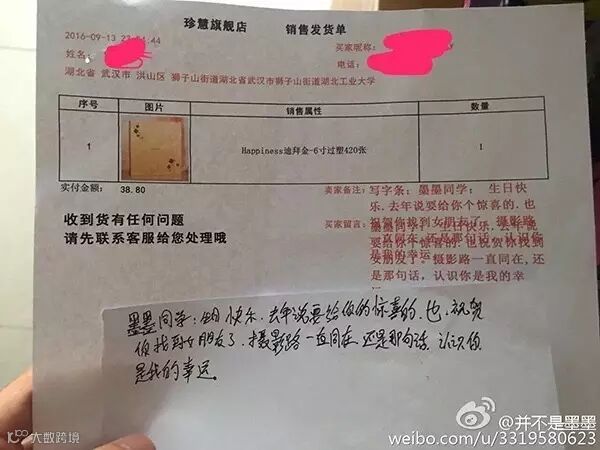 珍慧旗舰店 销售发货单
2016-09-13 23:54:44 买家昵称:
姓名: 电话:
湖北省 武汉市 洪山区 狮子山街道湖北省武汉市狮子山街道湖北工业大学
序号 图片 销售属性 数量
1 Happiness迪拜金-6寸过塑420张 1
实付金额: 38.80
卖家备注: 写字条:墨墨同学: 生日快
乐.去年说要给你个惊喜的.也
祝贺你找到女朋友了.摄影路
一直同在,还是那句话,认识你
是我的幸运
收到货有任何问题
请先联系客服给您处理哦
买家留言:
要给你个惊喜的.也祝贺你找到
女朋友了.摄影路一直同在,还
是那句话,认识你是我的幸
墨墨同学:生日快乐.去年说要给你的惊喜的.也.祝贺
你找到女朋友了.摄影路一直同在.还是那句话.认识你
是我的幸运.
@并不是墨墨
weibo.com/u/3319580623
大数跨境